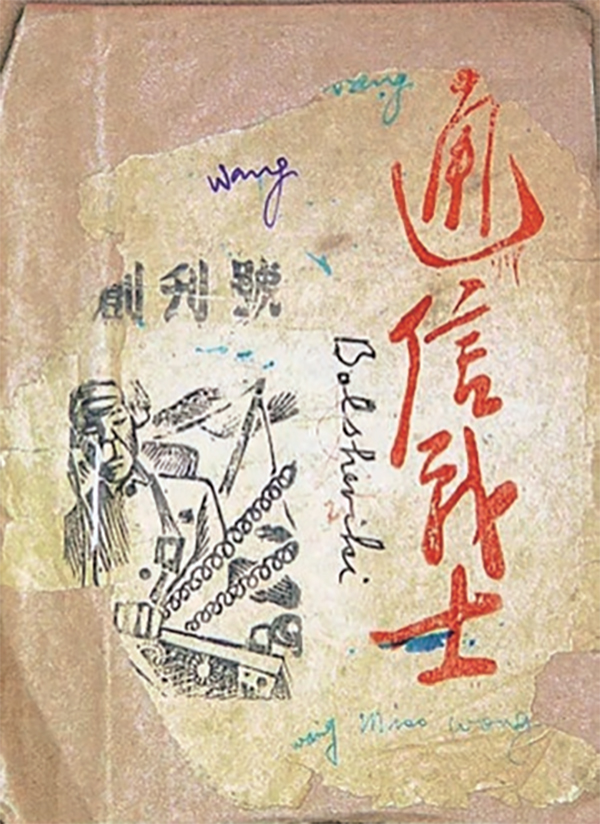 wang
wang
通信战士
創刊號
Bolsheviki
wang Miss wong